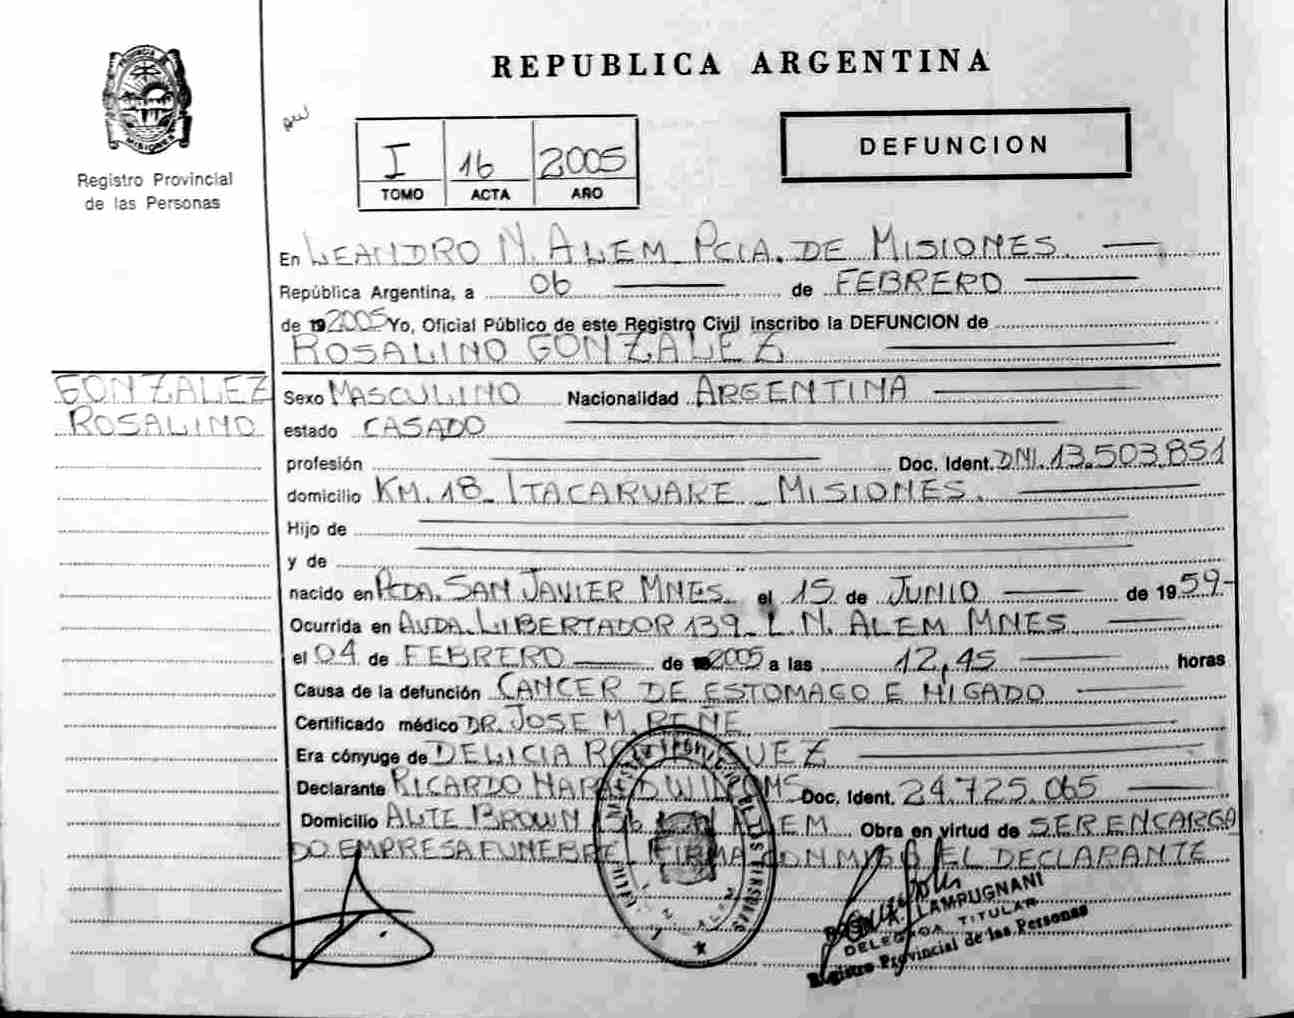 REPUBLICA ARGENTINA
PROVINCIA
MISIONES
Registro Provincial
de las Personas
I 16 2005
TOMO ACTA AÑO
DEFUNCION
En LEANDRO N. ALEM PCIA. DE MISIONES.
República Argentina, a 06 de FEBRERO
de 192005 Yo, Oficial Público de este Registro Civil inscribo la DEFUNCION de
ROSALINO GONZALEZ
GONZALEZ
ROSALINO
Sexo MASCULINO Nacionalidad ARGENTINA
estado CASADO
profesión Doc. Ident. DNI. 13.503.851
domicilio KM. 18 - ITACARUARE - MISIONES.
Hijo de
y de
nacido en PCDA. SAN JAVIER MNES. el 15 de JUNIO de 1959-
Ocurrida en AVDA. LIBERTADOR 139 - L.N. ALEM MNES
el 04 de FEBRERO de 2005 a las 12,45 horas
Causa de la defunción CANCER DE ESTOMAGO E HIGADO
Certificado médico DR. JOSE M. PEÑE
Era cónyuge de DELICIA
Declarante RICARDO Doc. Ident. 24.725.065
Domicilio ALTE BROWN ALEM Obra en virtud de SER ENCARGA
DO EMPRESA FUNEBRE. FIRMA CONMIGO EL DECLARANTE
LAMPUGNANI
DELEGADA TITULAR
Registro Provincial de las Personas